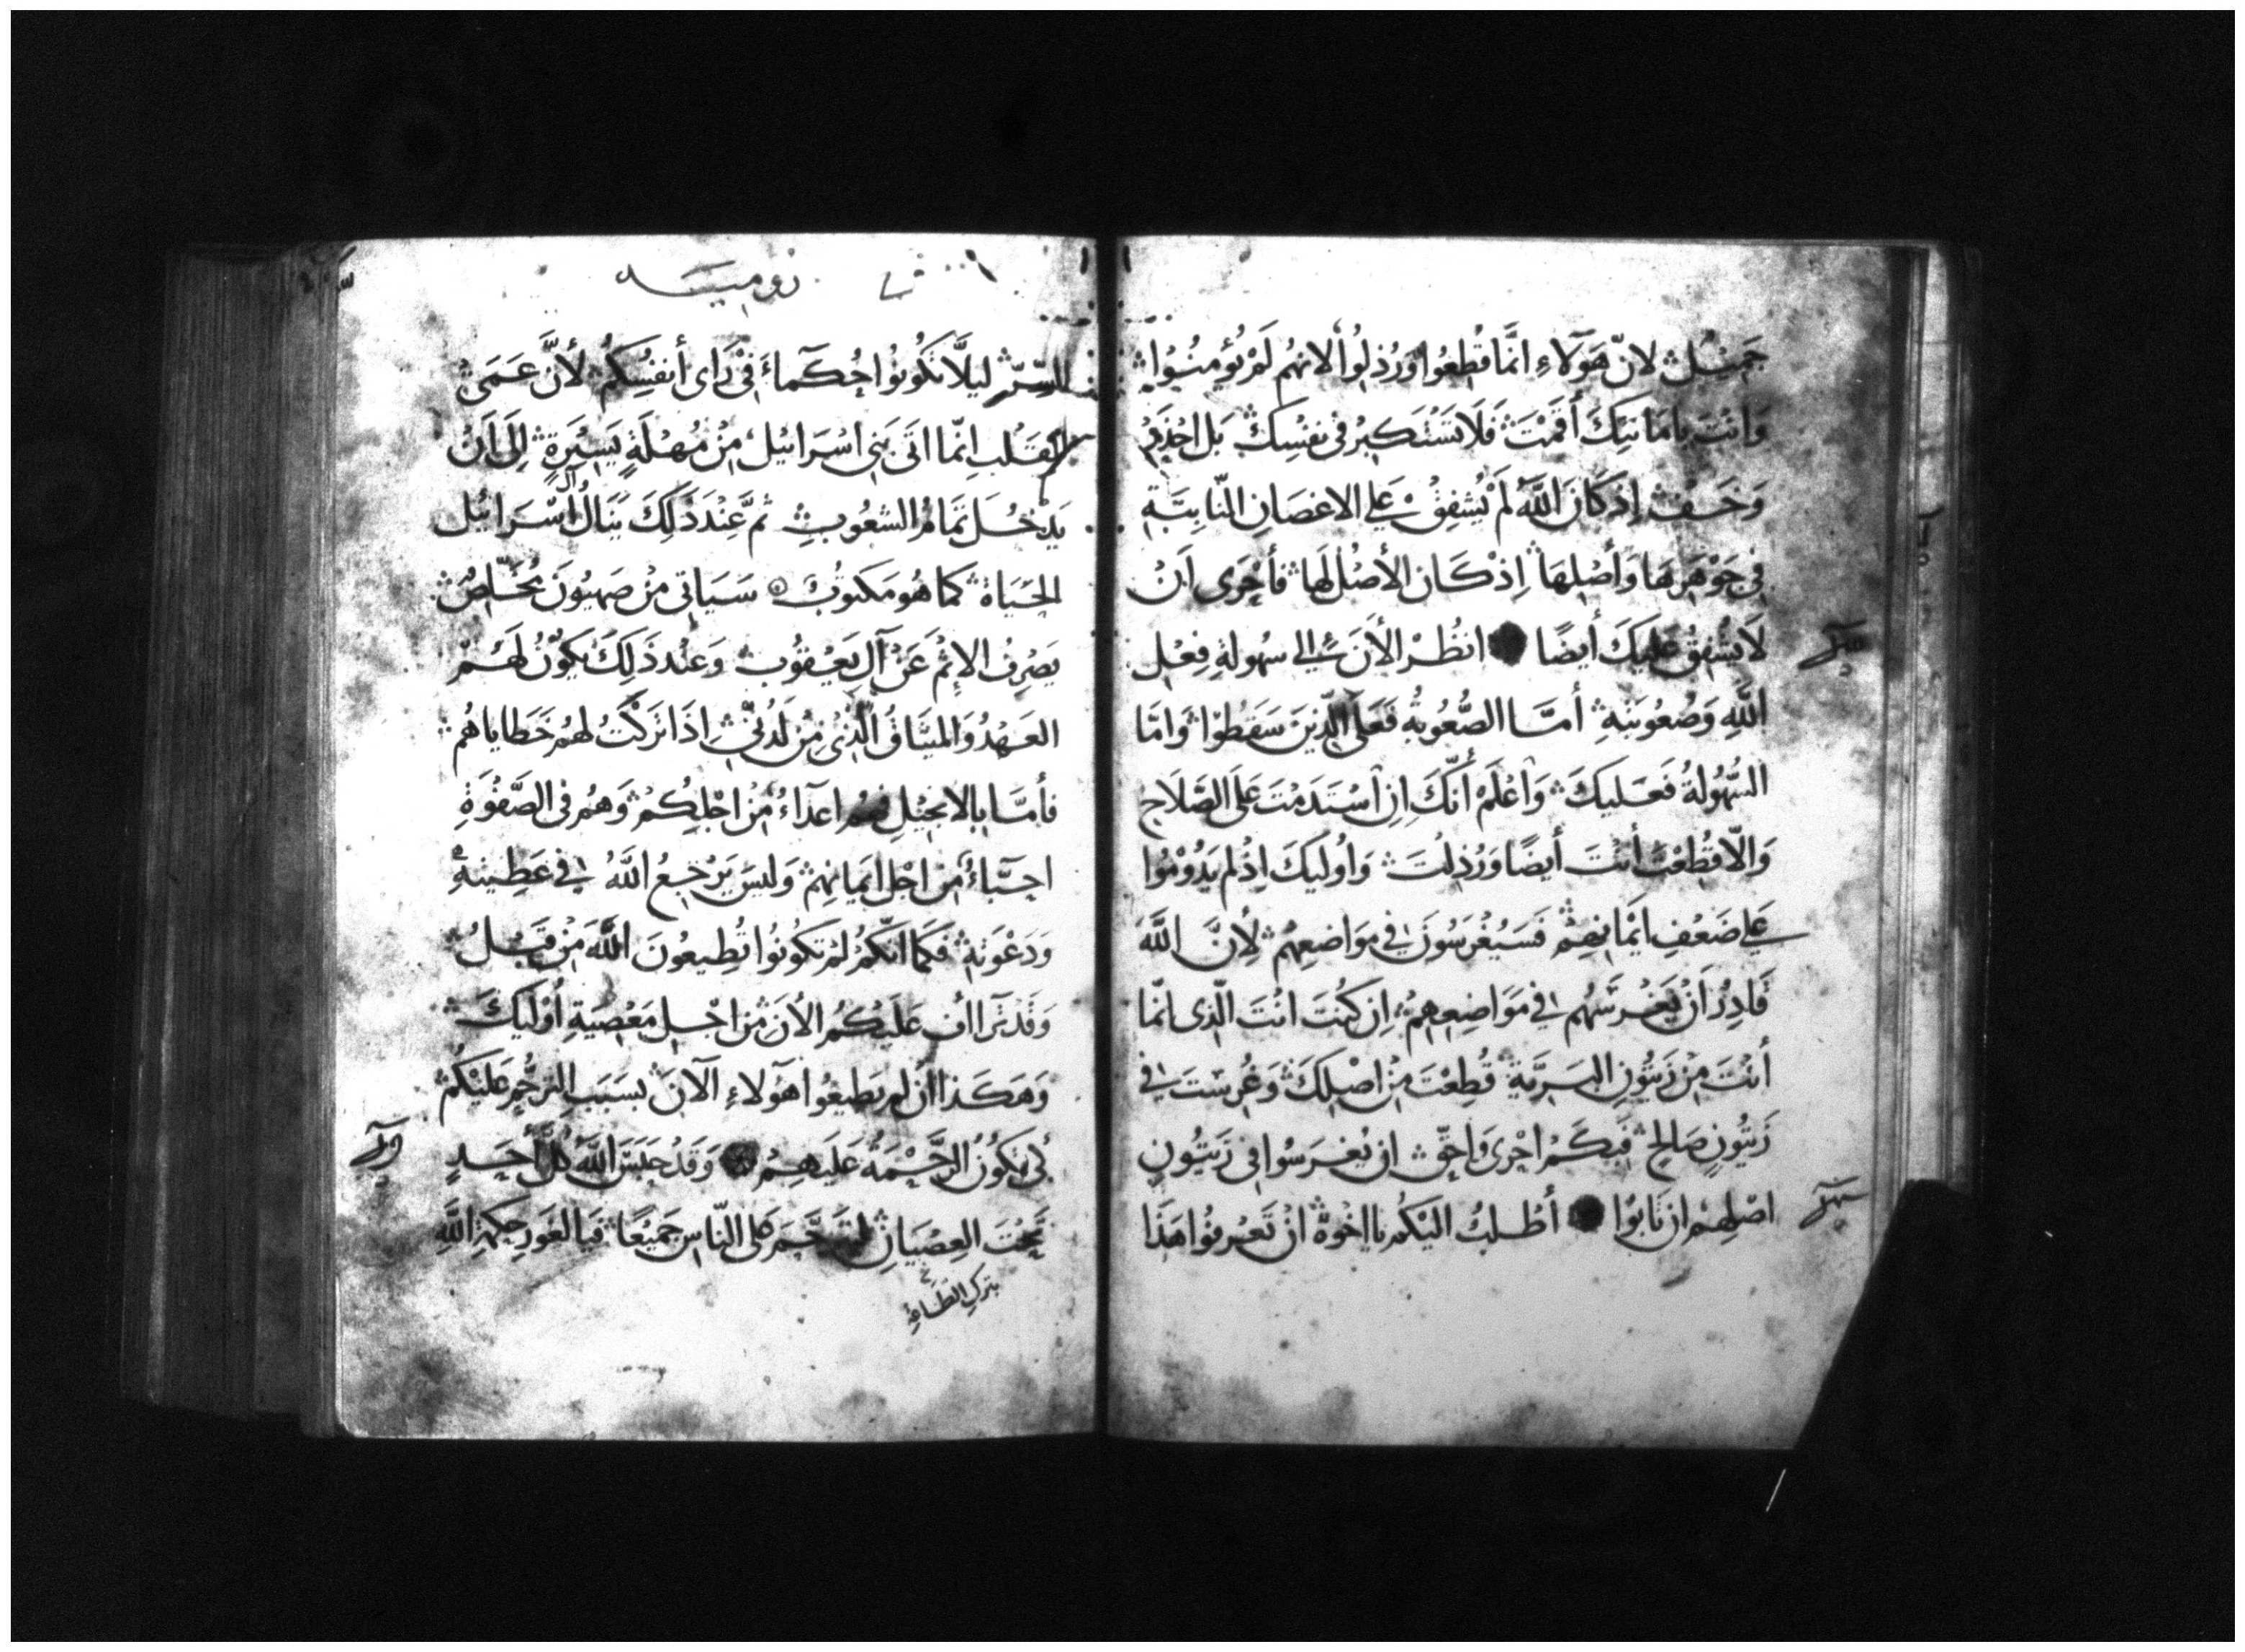 جَمِيْلٌ لانّ هَوُلآءِ انَّما قُطِعُوا وَرُذِلُوا لانهُم لَمْ يُؤمِنُوا
وَانْتَ بامَانتِكَ أقَمْتَ فَلَا تَسْتَكبِرْ في نفسِكَ بَل احْذَرْ
وَخَفْ إذ كانَ اللَّهُ لَمْ يُشفِقْ عَلي الاغصَانِ النّابِتَةِ
في جَوْهَرِهَا وَأصْلِهَا اِذْ كَانَ الأصْلُ لَها فأحْرَى اَنْ
لَا يُشفِقَ عَليكَ أيضًا انظُرْ الأَنَ الي سُهولةِ فِعْلِ
اللَّهِ وَصُعُوبَتِهِ أمّا الصُّعُوبةُ فَعَلَى الّذِينَ سَقَطُوا وَامّا
السُّهُولةُ فَعَليكَ وَاعْلَمْ أنّكَ اِنِ اسْتَدَمْتَ عَلَى الصَّلَاحِ
وَالّا قُطِعْتَ أنْتَ أيضًا وَرُذِلْتَ وَاُوليكَ اِذْ لم يَدُوْمُوا
عَلي ضَعْفِ ايْمانِهِمْ فَسَيُغْرَسُونَ في مَوَاضِعِهِمْ لِأنَّ اللَّهَ
قَادِرٌ اَنْ يَغْرِسَهُم في مَوَاضِعِهِمْ اِن كنْتَ انْتَ الّذِى انّما
أنْتَ مِنْ زَيتُونِ البَرِيَّةِ قُطِعْتَ مِنْ اصْلِكَ وَغُرِسْتَ في
زَيتُونٍ صَالِحٍ فَبِكَمْ احْرَى وَاحَقّ ان يُغرَسُوا في زَيتُونِ
اصْلِهِمْ ان تَابُوا أطْلبُ اليْكُم يا اخْوَة انْ تَعْرِفُوا هَذَا
رومية
السِّرّ ليلَّا تَكُونُوا حُكَمآءَ فِيْ رَاى أنفُسِكُمْ لأنَّ عَمَى
القَلْبِ انّما اتَى بَنِى اسْرَائيْل مِنْ مُهْلَةٍ يَسِيْرَةٍ الَى اَنْ
يَدْخُلَ تَمَامُ الشعُوبِ ثم عِنْدَ ذَلِكَ يَنَالُ آلُ اسْرَائيل
الحَيَاة كما هُو مَكتوُبٌ سَيَاتِى مِنْ صَهيُونَ مُخَلِّصٌ
يَصْرِفُ الاِثمَ عَنْ آلِ يَعْقوُب وَعنْد ذَلِكَ يَكوُنُ لَهُمْ
العَهْدُ وَالميثَاقُ الّذِيْ مِنْ لَدُنّي اِذَا تَرَكْتُ لهُمْ خَطَاياهُم
فأمّا بالانجيْلِ فهُم اعدَآءُ مِنْ اجْلِكُمْ وَهُم في الصَّفْوَةِ
احبّآءُ مِنْ اجْلِ ابَايهِمْ وَليسَ يَرْجعُ اللَّهُ في عَطِيتهِ
وَدَعْوَتهِ فكَما انّكمْ لمْ تكُونُوا تُطِيعُونَ اللَّهَ مِنْ قَبْلُ
وَقَدْ تَرَااف عَليْكُم الاَن مِنْ اجْلِ مَعْصِيَةِ أوْليكَ
وَهَكَذا ان لم يَطيعُوا هَوُلاءِ الآنَ بسَبَبِ الترحُّمِ عَليْكُمْ
كَى تكُونُ الرَّحْمَةُ عَليهِمْ وَقَدْ حَبَسَ اللَّهُ كُلَّ أحَدٍ
تحْتَ العِصْيَانِ ليَترَحَّمَ عَلى النّاسِ جَمِيْعًا فَيَا لغَورِ حكمَةِ اللَّهِ
بتركِ الطَّاعة